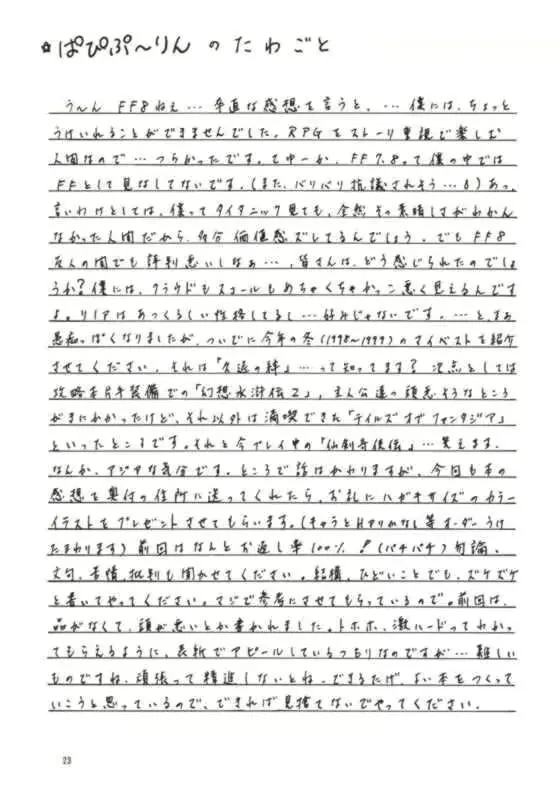 ☆ぱぴぷ〜りんのたわごと
う〜ん FF8ねぇ…率直な感想を言うと、…僕には、ちょっと
うけいれることができませんでした。RPGをストーリ重視で楽しむ
人間なので…つらかったです。て中ーか、FF7.8って僕の中では
FFとして見なしてないです。(また、バリバリ抗議されそう…6)あっ、
言いわけとしては、僕ってタイタニック見ても、全然その素晴しさがわかん
なかった人間だから、多分価値感ズレてるんでしょう。でもFF8
友人の間でも評判悪いしなぁ…、皆さんは、どう感じられたのでしょ
うか?僕には、クラウドもスコールもめちゃくちゃかっこ悪く見えるんです
よ。リノアはあつくるしい性格してるし…好みじゃないです。…と、まぁ
愚痴っぽくなりましたが、ついでに今年の冬(1998〜1999)のマイベストを紹介
させてください。それは「久遠の絆」…って知ってます?次点としては
攻略本片手装備での「幻想水滸伝2」、主人公達の頭悪そうなところ
が気にかかったけど、それ以外は満喫できた「テイルズオブファンタジア」
といったところです。それと今プレイ中の「仙剣奇侠伝」…笑えます。
なんか、アジアな気分です。ところで話はかわりますが、今回も本の
感想を奥付の住所に送ってくれたら、お礼にハガキサイズのカラー
イラストをプレゼントさせてもらいます。(キャラとHアリorなし等オーダーうけ
たまわります)前回はなんとお返し率100%!(パチパチ)勿論、
文句、苦情、批判も聞かせてください。結構、ひどいことでも、ズケズケ
と書いてやってください。マジで参考にさせてもらっているので。前回は、
品がなくて、頭が悪いとか書かれました。トホホ、激ハードってわかっ
てもらえるように、表紙でアピールしているつもりなのですが…難しい
ものですね、頑張って精進しないとね。できるだけ、よい本をつくって
いこうと思っているので、できれば見捨てないでやってください。
23